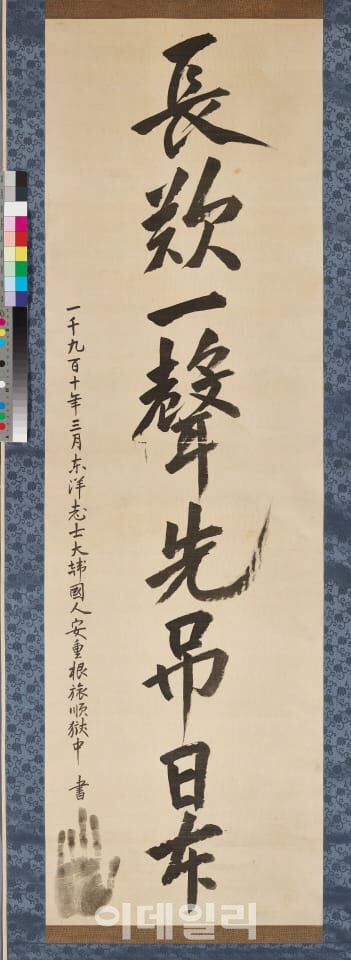 長歎一聲先吊日本
一千九百十年三月东洋志士大韓國人安重根旅順獄中 書
이데일리